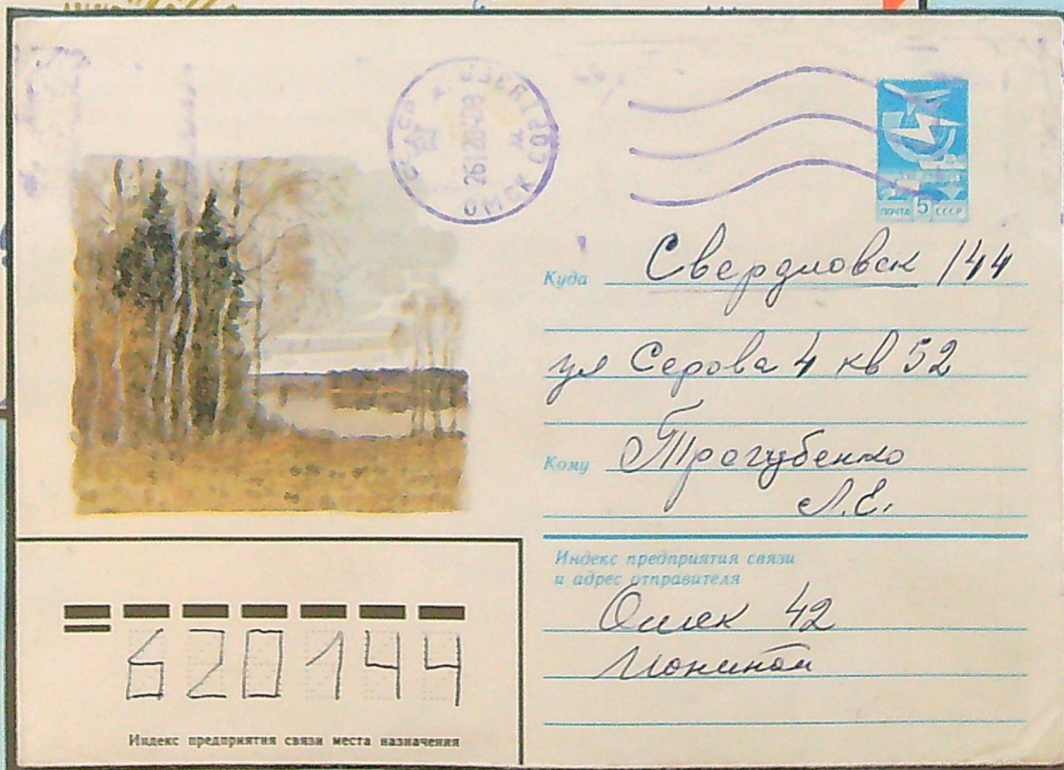 ОМСК
ПОЧТА 5к СССР
Куда Свердловск 144
ул Серова 4 кв 52
Кому Трегубенко
Л.Е.
Индекс предприятия связи
и адрес отправителя
Омск 42
620144
Индекс предприятия связи места назначения